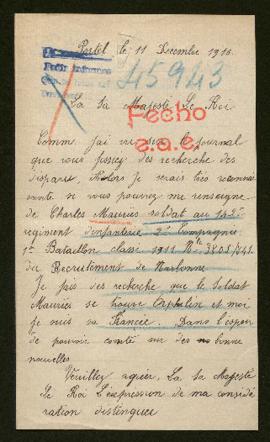 Portel le 11 Decembre 1916.
45943
La Sa Majesté Le Roi
Fecho
a.a.e.
Comme j'ai vu sur le journal
que vous faisiez des recherche des
disparus, Alors Je serais très reconnai
sante si vous pouviez me renseigne
de Charles Mauries soldat au 142e
regiment d'infanterie 2e Compagnie
1er Bataillon classe 1911 No
du Recrutement de Narbonne
Je fais des recherche que le Soldat
Mauries se trouve Orphelin et moi
je suis sa Fiancée. Dans l'espoir
de pouvoir comté sur des bonne
nouvelles
Veuillez agréer, La Sa Majesté
Le Roi l'expression de ma considé
ration distinguée